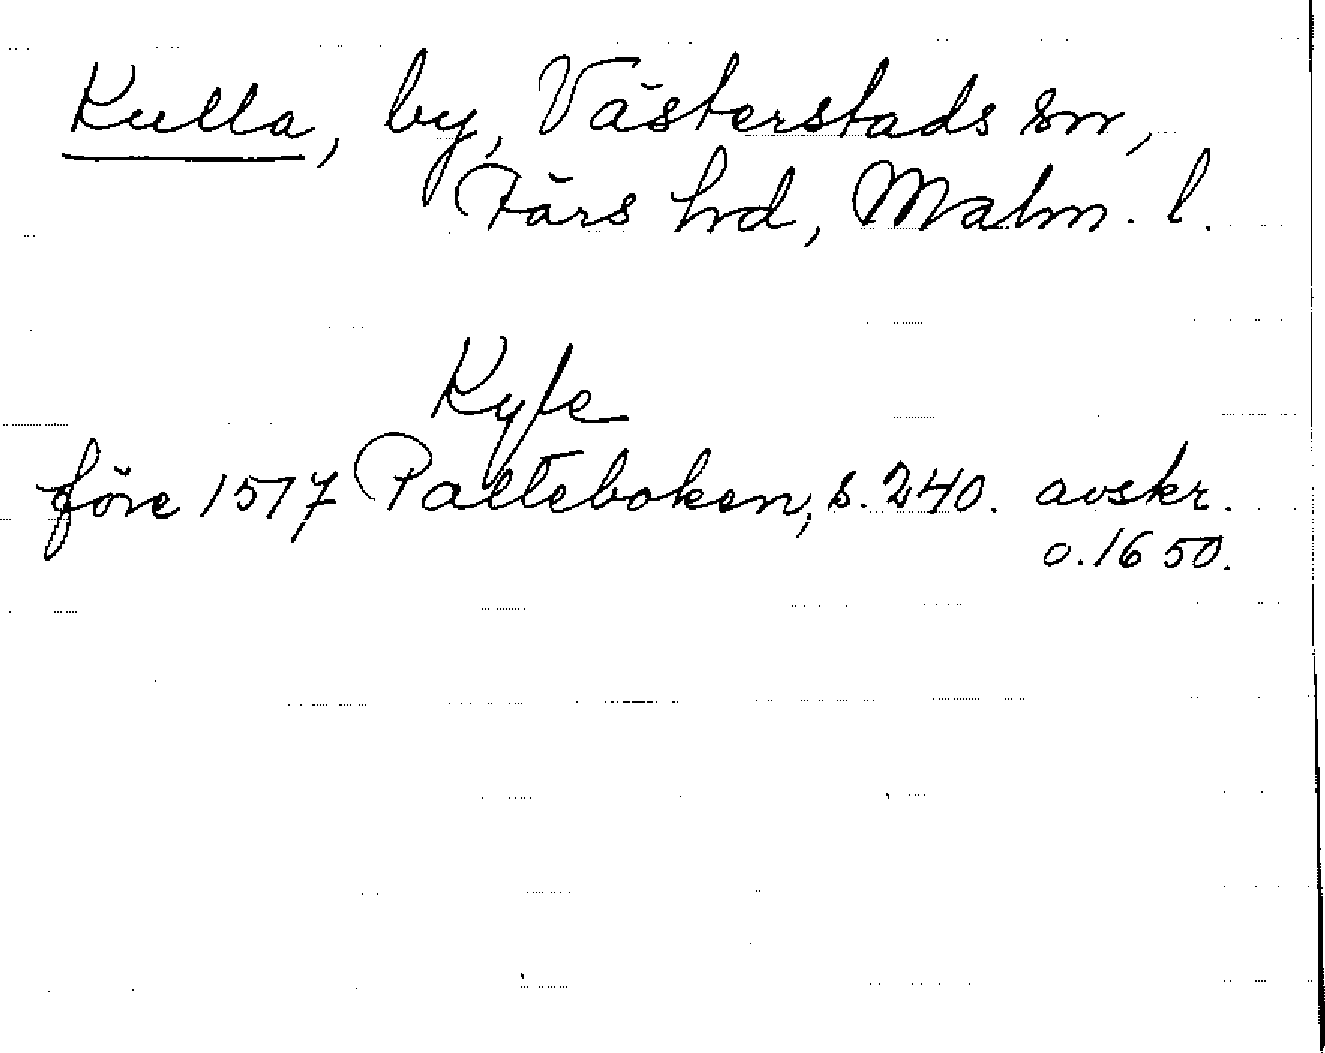 Kulla, by, Västerstads sn,
Färs hd, Malm. l.
Kyle
före 1517 Palteboken, s. 240. avskr.
o. 1650.